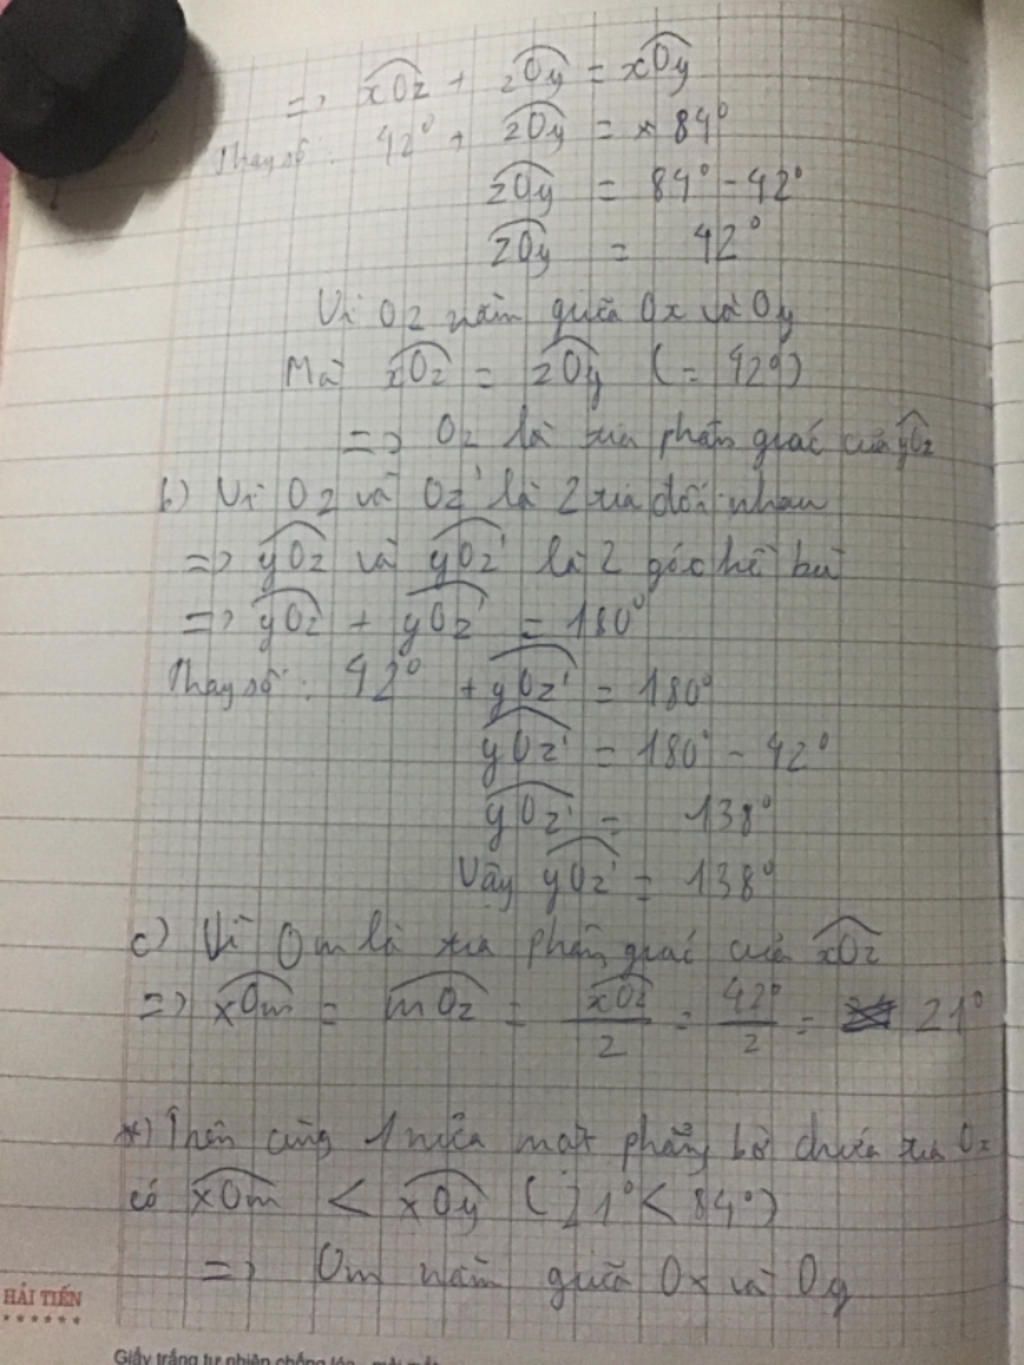 => xOz + zOy = xOy
Thay số: 42° + zOy = 84°
zOy = 84° - 42°
zOy = 42°
Vì Oz nằm giữa Ox và Oy
Mà xOz = zOy (= 42°)
=> Oz là tia phân giác của yOz
b) Vì Oz và Oz' là 2 tia đối nhau
=> yOz và yOz' là 2 góc kề bù
=> yOz + yOz' = 180°
Thay số: 42° + yOz' = 180°
yOz' = 180° - 42°
yOz' = 138°
Vậy yOz' = 138°
c) Vì Om là tia phân giác của xOz
=> xOm = mOz = xOz/2 = 42°/2 = 21°
*) Trên cùng 1 nửa mặt phẳng bờ chứa tia Ox
có xOm < xOy (21° < 84°)
=> Om nằm giữa Ox và Oy
HẢI TIẾN
Giấy trắng tự nhiên chống lóa